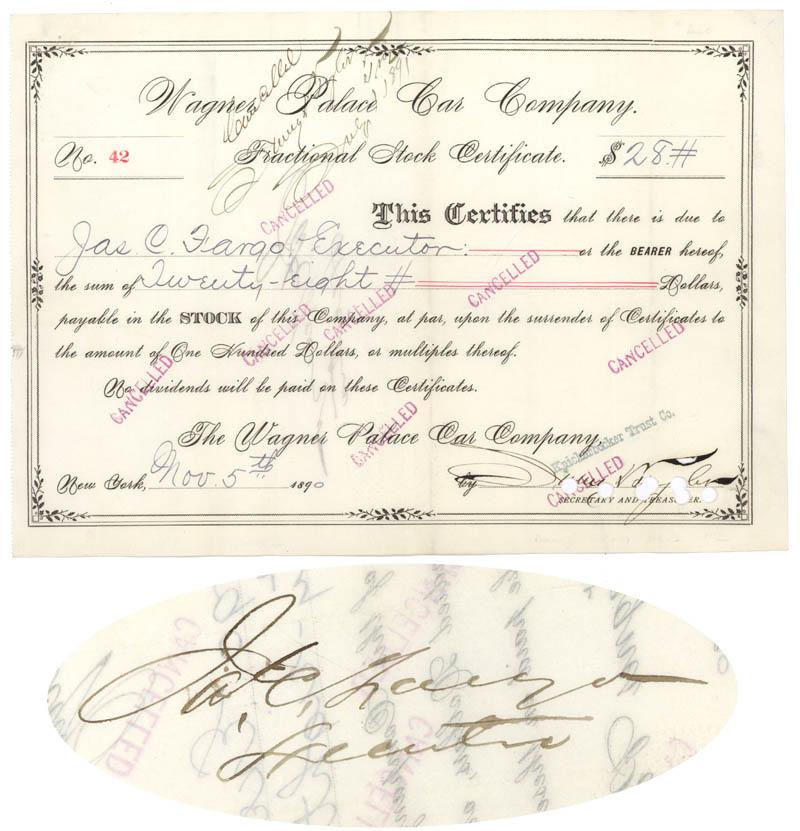 Cancelled
July 1891
Wagner Palace Car Company.
No. 42 Fractional Stock Certificate. $28.#
This Certifies that there is due to
Jas. C. Fargo Executor: or the BEARER hereof,
the sum of Twenty-Eight # Dollars,
payable in the STOCK of this Company, at par, upon the surrender of Certificates to
the amount of One Hundred Dollars, or multiples thereof.
No dividends will be paid on these Certificates.
The Wagner Palace Car Company,
New York, Nov. 5th 1890 by
SECRETARY AND TREASURER.
Knickerbocker Trust Co.
CANCELLED
CANCELLED
CANCELLED
CANCELLED
CANCELLED
CANCELLED
CANCELLED
CANCELLED
Jas. C. Fargo
Executor
CANCELLED
CANCELLED